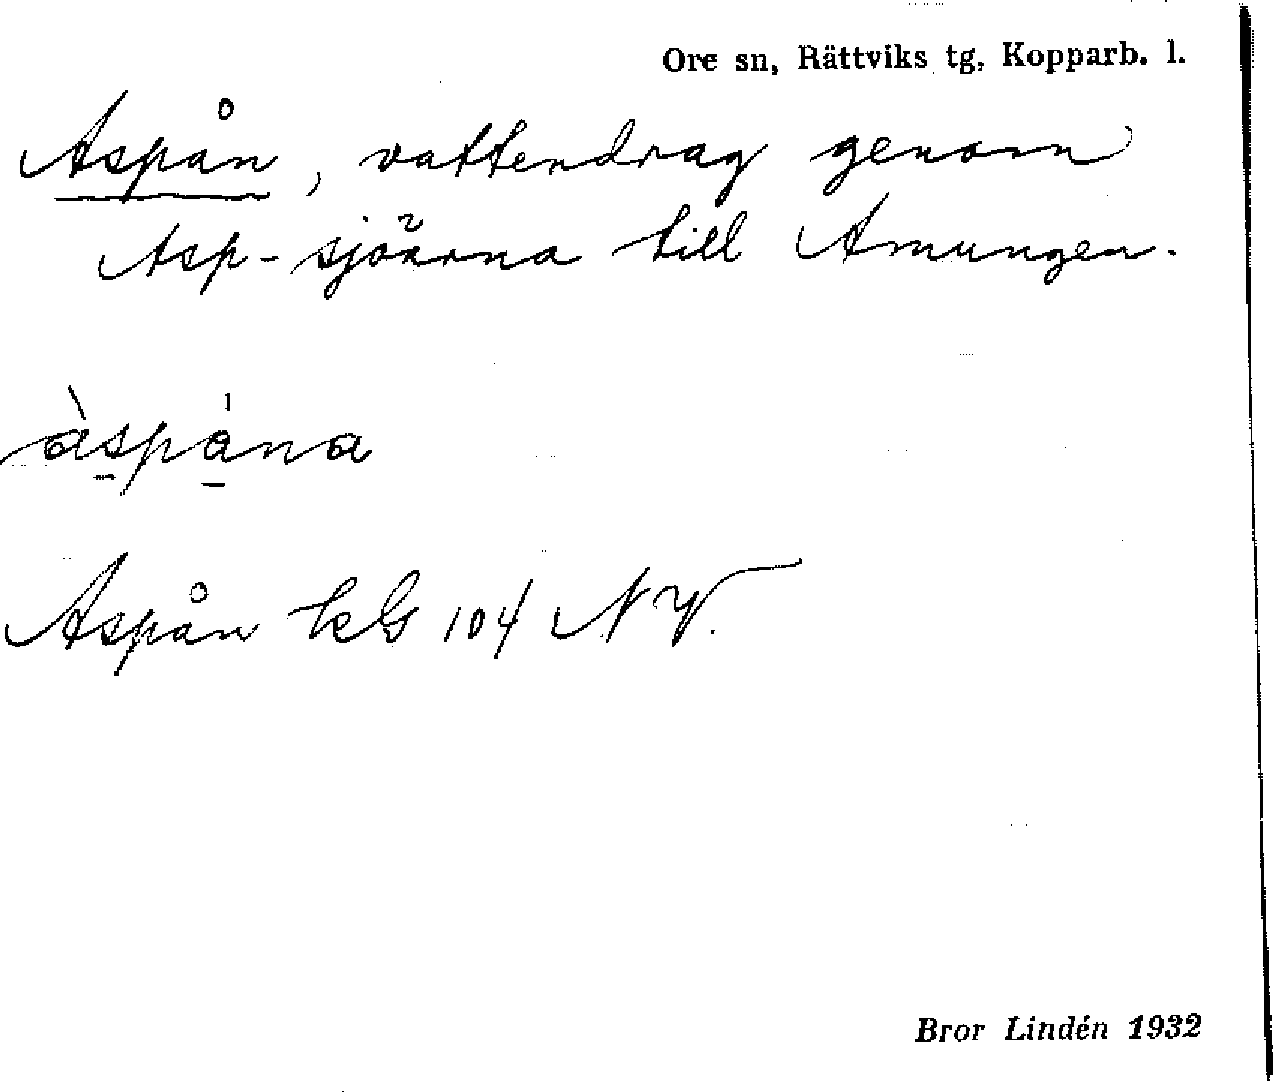 Ore sn, Rättviks tg. Kopparb. l.
Aspån, vattendrag genom
Asp-sjöarna till Amungen.
àspåna
Aspån kG 104 NV.
Bror Lindén 1932